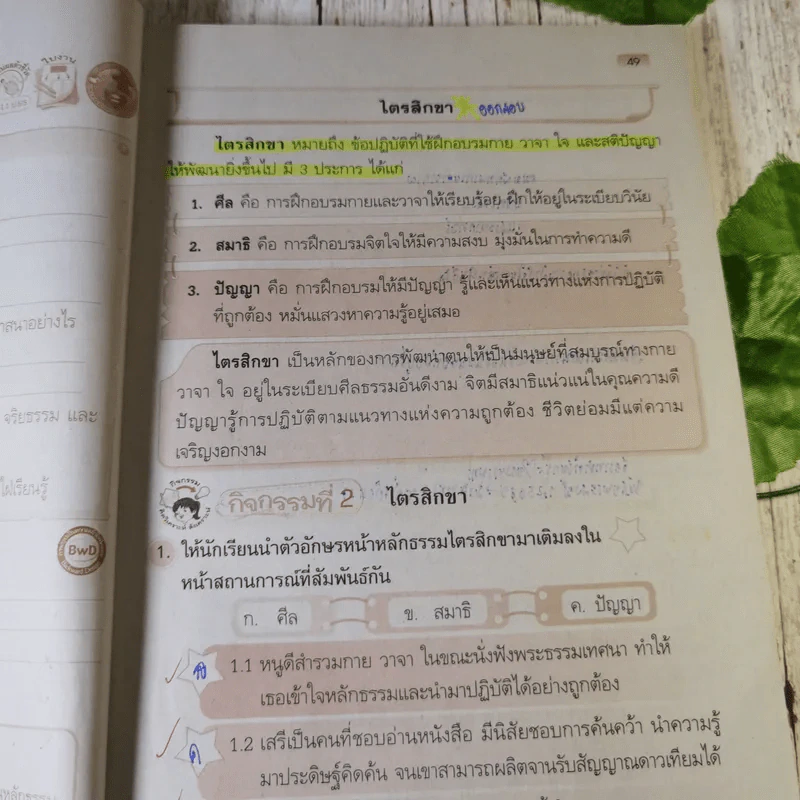 ใบงาน
49
ไตรสิกขา ออกสอบ
ไตรสิกขา หมายถึง ข้อปฏิบัติที่ใช้ฝึกอบรมกาย วาจา ใจ และสติปัญญา
ให้พัฒนายิ่งขึ้นไป มี 3 ประการ ได้แก่
1. ศีล คือ การฝึกอบรมกายและวาจาให้เรียบร้อย ฝึกให้อยู่ในระเบียบวินัย
2. สมาธิ คือ การฝึกอบรมจิตใจให้มีความสงบ มุ่งมั่นในการทำความดี
3. ปัญญา คือ การฝึกอบรมให้มีปัญญา รู้และเห็นแนวทางแห่งการปฏิบัติ
ที่ถูกต้อง หมั่นแสวงหาความรู้อยู่เสมอ
ไตรสิกขา เป็นหลักของการพัฒนาตนให้เป็นมนุษย์ที่สมบูรณ์ทางกาย
วาจา ใจ อยู่ในระเบียบศีลธรรมอันดีงาม จิตมีสมาธิแน่วแน่ในคุณความดี
ปัญญารู้การปฏิบัติตามแนวทางแห่งความถูกต้อง ชีวิตย่อมมีแต่ความ
เจริญงอกงาม
กิจกรรม
กิจกรรมที่ 2 ไตรสิกขา
1. ให้นักเรียนนำตัวอักษรหน้าหลักธรรมไตรสิกขามาเติมลงใน
หน้าสถานการณ์ที่สัมพันธ์กัน
ก. ศีล ข. สมาธิ ค. ปัญญา
1.1 หนูดีสำรวมกาย วาจา ในขณะนั่งฟังพระธรรมเทศนา ทำให้
เธอเข้าใจหลักธรรมและนำมาปฏิบัติได้อย่างถูกต้อง
ค 1.2 เสรีเป็นคนที่ชอบอ่านหนังสือ มีนิสัยชอบการค้นคว้า นำความรู้
มาประดิษฐ์คิดค้น จนเขาสามารถผลิตจานรับสัญญาณดาวเทียมได้
าสนาอย่างไร
จริยธรรม และ
ใฝ่เรียนรู้
BwD